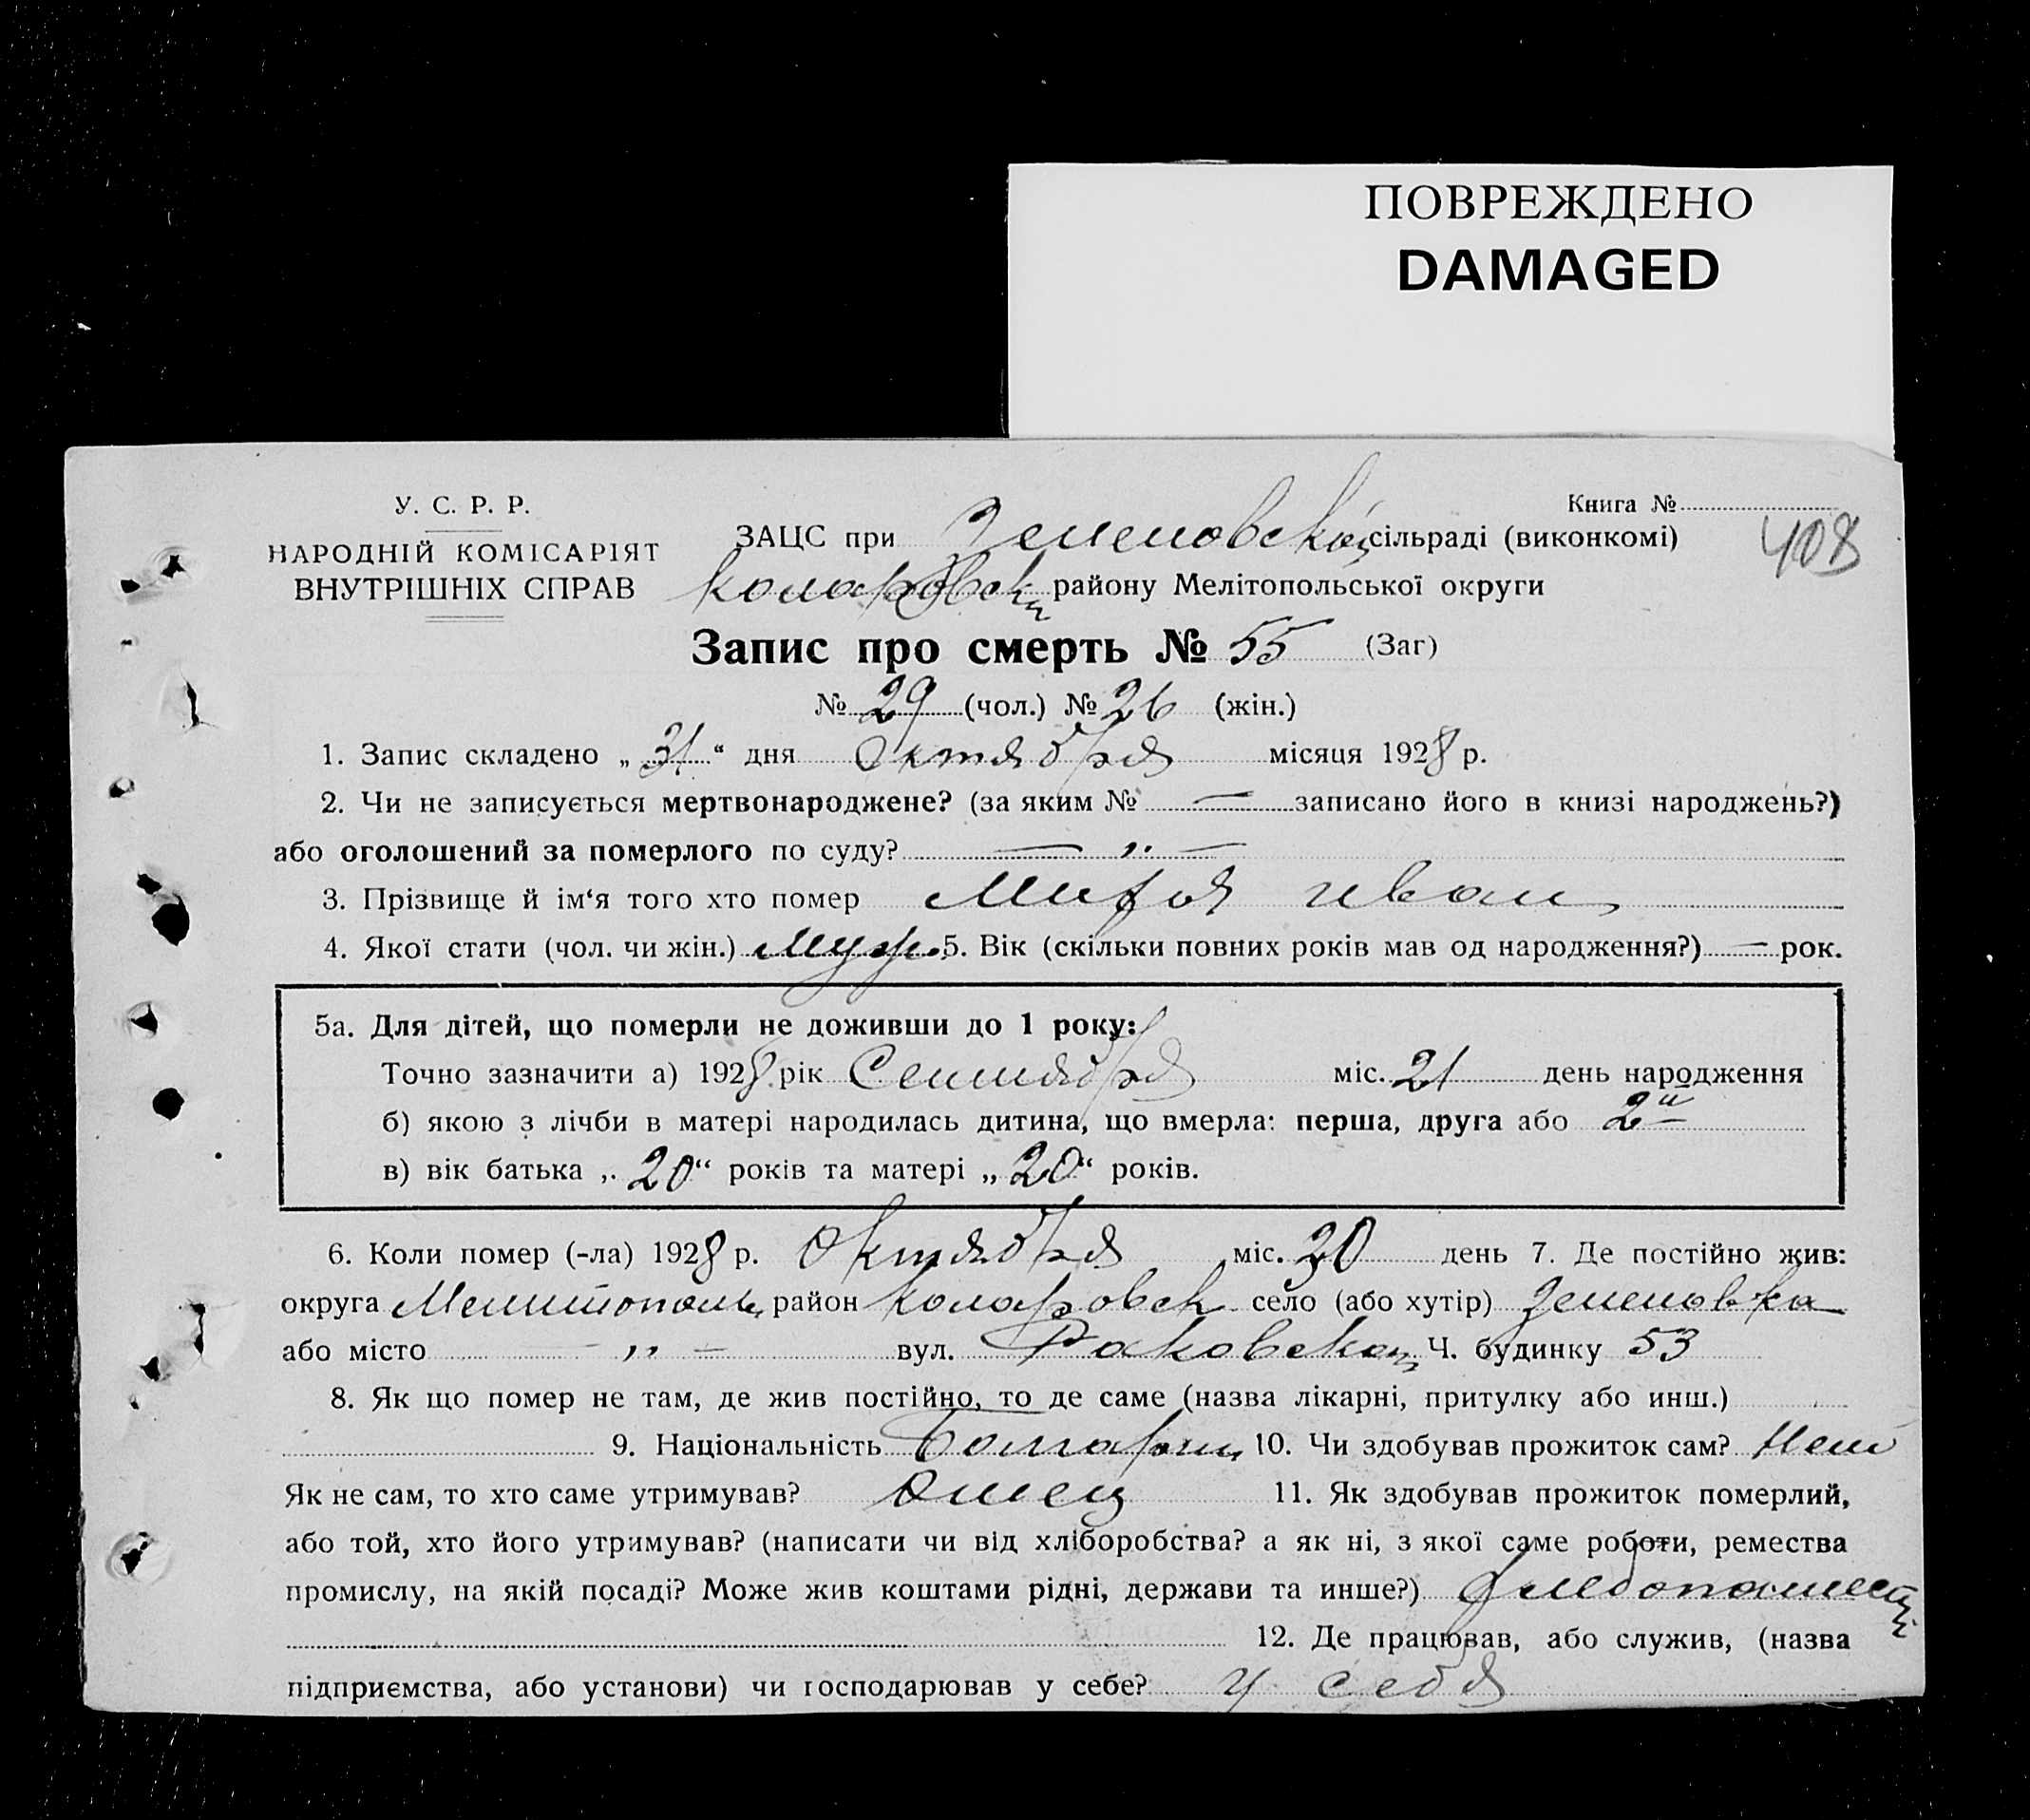 ПОВРЕЖДЕНО
DAMAGED
У. С. Р. Р.
НАРОДНІЙ КОМІСАРІЯТ
ВНУТРІШНІХ СПРАВ
Книга №
408
ЗАЦС при Зеленовской сільраді (виконкомі)
Коларовск району Мелітопольської округи
Запис про смерть № 55 (Заг)
№ 29 (чол.) № 26 (жін.)
1. Запис складено „ 31 “ дня Октября місяця 1928 р.
2. Чи не записується мертвонароджене? (за яким № — записано його в книзі народжень?)
або оголошений за померлого по суду? — „ —
3. Прізвище й ім‘я того хто помер Иван
4. Якої стати (чол. чи жін.) Муж. 5. Вік (скільки повних років мав од народження?) — рок.
5а. Для дітей, що померли не доживши до 1 року:
Точно зазначити а) 1928 рік Сентября міс. 21 день народження
б) якою з лічби в матері народилась дитина, що вмерла: перша, друга або 2й
в) вік батька „ 20 “ років та матері „ 20 “ років.
6. Коли помер (-ла) 1928 р. Октября міс. 30 день 7. Де постійно жив:
округа Мелитополь район Коларовск село (або хутір) Зеленовка
або місто — „ — вул. Раковской Ч. будинку 53
8. Як що помер не там, де жив постійно, то де саме (назва лікарні, притулку або инш.)
9. Національність Болгарин 10. Чи здобував прожиток сам? Нет
Як не сам, то хто саме утримував? Отец 11. Як здобував прожиток померлий,
або той, хто його утримував? (написати чи від хліборобства? а як ні, з якої саме роботи, ремества
промислу, на якій посаді? Може жив коштами рідні, держави та инше?) Хлебопашест
12. Де працював, або служив, (назва
підприємства, або установи) чи господарював у себе? У себя